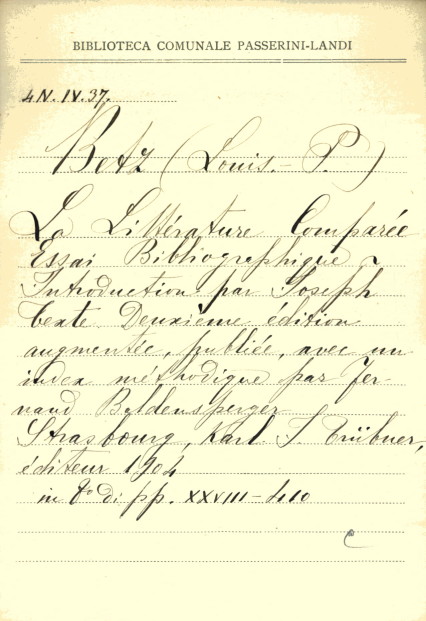 BIBLIOTECA COMUNALE PASSERINI-LANDI
4N.IV.37.
Betz (Louis.- P.)
La Littérature Comparée
Essai Bibliographique ~
Introduction par Joseph
Texte Deuxième édition
augmentée, publiée, avec un
index méthodique par Fer-
nand Baldensperger
Strasbourg, Karl J. Trübner,
éditeur 1904
in 8° di pp. XXVIII-410
c